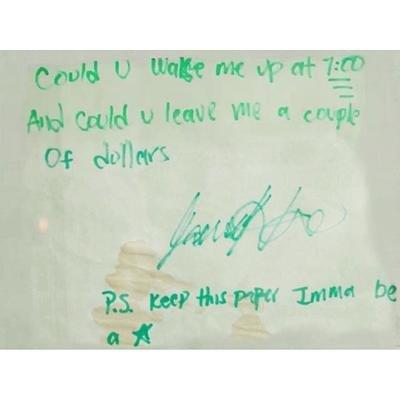 Could U wake me up at 7:00
And could u leave me a couple
Of dollars
P.S. keep this paper Imma be
a ☆